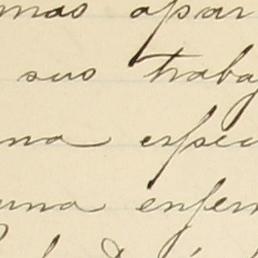 mas apar
sus traba
na espec
una enfer